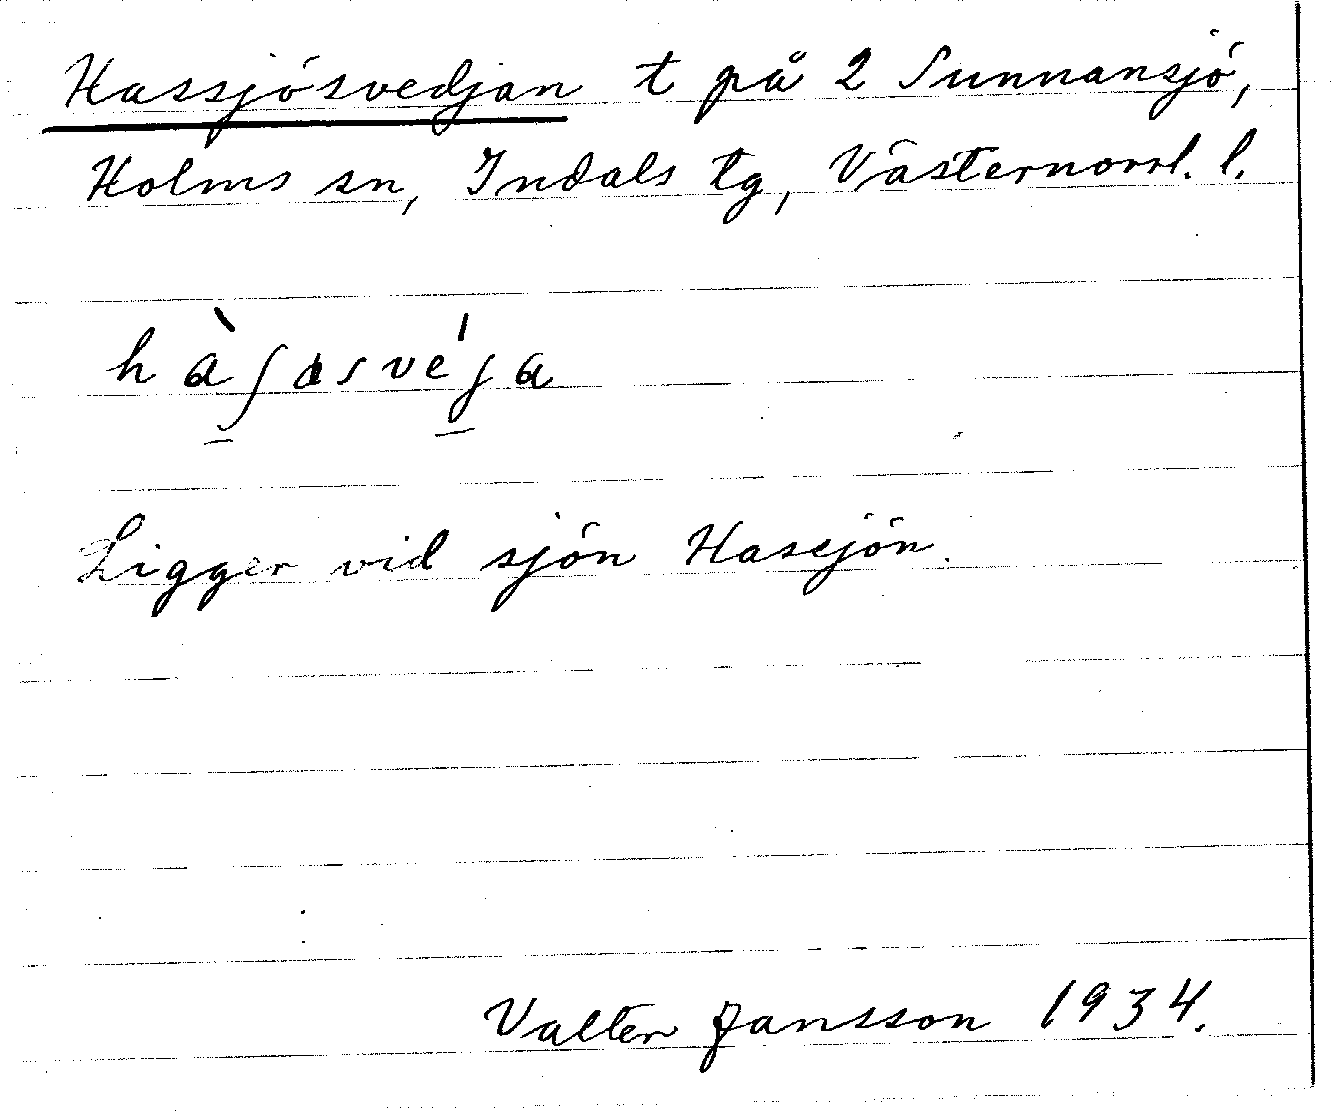 Hassjösvedjan t på 2 Sunnansjö,
Holms sn, Indals tg, Västernorrl. l.
hàʃɑsvéʃa
Ligger vid sjön Hasejön.
Valter Jansson 1934.